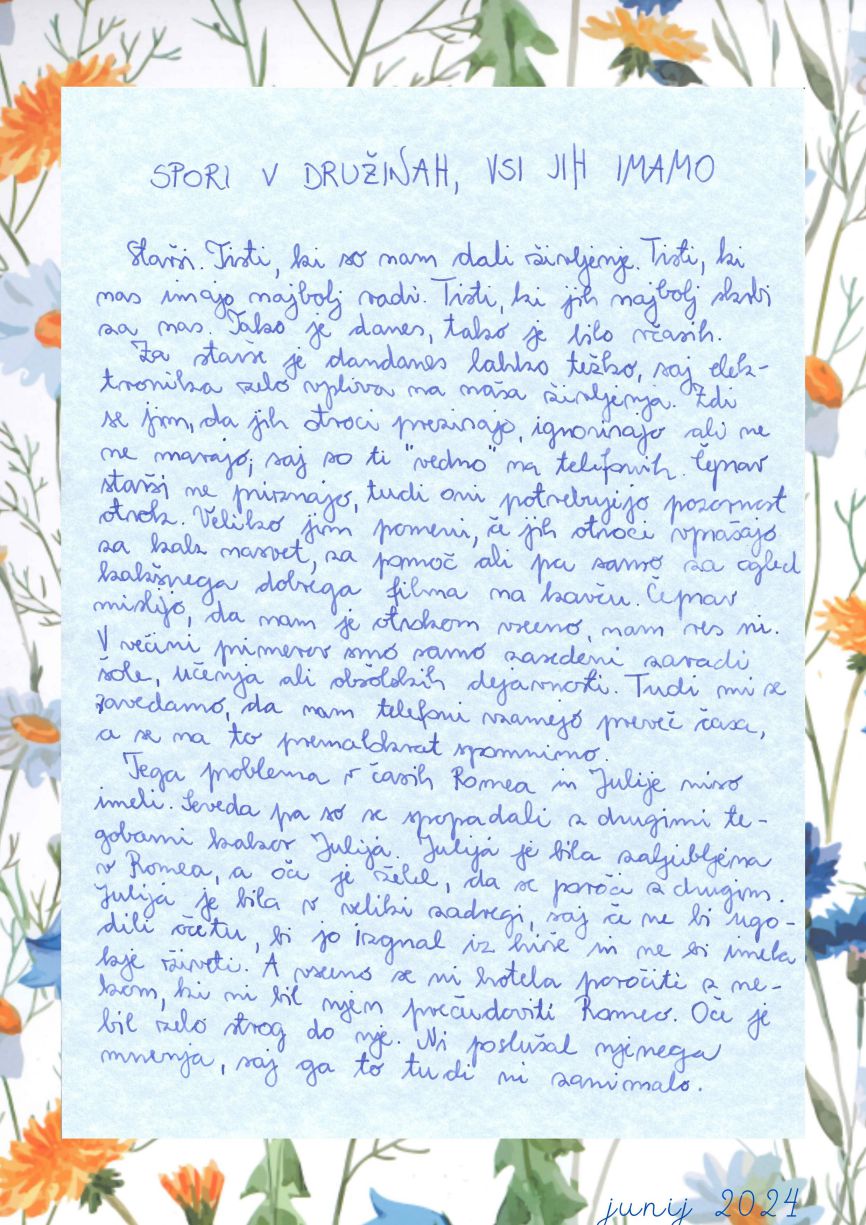 SPORI V DRUŽINAH, VSI JIH IMAMO
Starši. Tisti, ki so nam dali življenje. Tisti, ki
nas imajo najbolj radi. Tisti, ki jih najbolj skrbi
za nas. Tako je danes, tako je bilo včasih.
Za starše je dandanes lahko težko, saj elek-
tronika zelo vpliva na naša življenja. Zdi
se jim, da jih otroci prezirajo, ignorirajo ali ne
ne marajo, saj so ti "vedno" na telefonih. Čeprav
starši ne priznajo, tudi oni potrebujejo pozornost
otrok. Veliko jim pomeni, če jih otroci vprašajo
za kak nasvet, za pomoč ali pa samo za ogled
kakšnega dobrega filma na kavču. Čeprav
mislijo, da nam je otrokom vseeno, nam res ni.
V večini primerov smo samo zasedeni zaradi
šole, učenja ali obšolskih dejavnosti. Tudi mi se
zavedamo, da nam telefoni vzamejo preveč časa,
a se na to premalokrat spomnimo.
Tega problema v časih Romea in Julije niso
imeli. Seveda pa so se spopadali z drugimi te-
gobami kakor Julija. Julija je bila zaljubljena
v Romea, a oče je želel, da se poroči z drugim.
Julija je bila v veliki zadregi, saj če ne bi ugo-
dili očetu, bi jo izgnal iz hiše in ne bi imela
kje živeti. A vseeno se ni hotela poročiti z ne-
kom, ki ni bil njen prečudoviti Romeo. Oče je
bil zelo strog do nje. Ni poslušal njenega
mnenja, saj ga to tudi ni zanimalo.
junij 2024